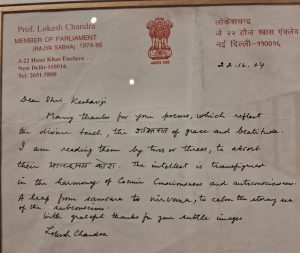 Prof. Lokesh Chandra
MEMBER OF PARLIAMENT
(RAJYA SABHA) 1974-86
J-22 Hauz Khas Enclave
New Delhi-110016
Tel: 2651.5800
लोकेशचन्द्र
जे २२ हौज़ खास एंक्लेव
नई दिल्ली-११००१६
22.12.04
Dear Shri
Many thanks for your poems, which reflect
the divine touch, the of grace and beatitude.
I am reading them by twos or threes, to absorb
their The intellect is transfigured
in the harmony of Cosmic Consciousness and
A leap from samsara to nirvana, to calm the stormy sea
of the subconscious.
With grateful thanks for your subtle images
Lokesh Chandra